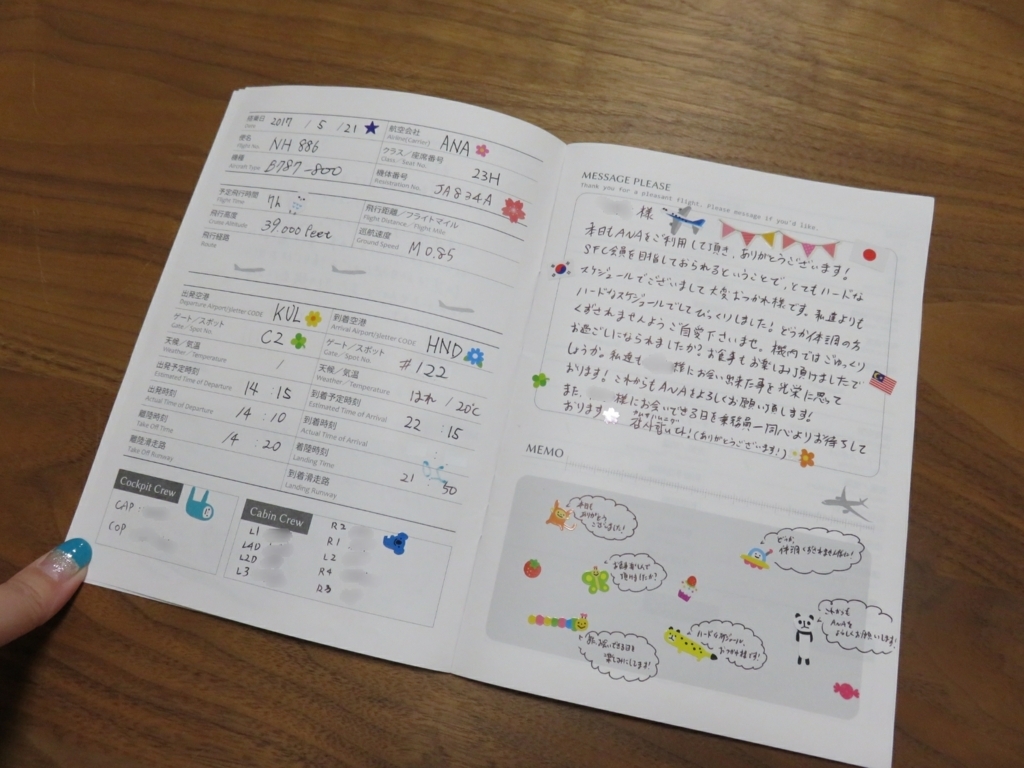 搭乗日 2017 / 5 / 21
Date
航空会社 ANA
Airline(Carrier)
便名 NH 886
Flight No.
クラス／座席番号 23H
Class / Seat No.
機種 B787-800
Aircraft Type
機体番号 JA834A
Registration No.
予定飛行時間 7h
Flight Time
飛行距離／フライトマイル
Flight Distance / Flight Mile
飛行高度 39,000 feet
Cruise Altitude
巡航速度 M 0.85
Ground Speed
飛行経路
Route
出発空港 KUL
Departure Airport(3letter CODE)
到着空港 HND
Arrival Airport(3letter CODE)
ゲート／スポット C2
Gate / Spot No.
ゲート／スポット #122
Gate / Spot No.
天候／気温 /
Weather / Temperature
天候／気温 はれ / 20℃
Weather / Temperature
出発予定時刻 14 : 15
Estimated Time of Departure
到着予定時刻 22 : 15
Estimated Time of Arrival
出発時刻 14 : 10
Actual Time of Departure
到着時刻
Actual Time of Arrival
離陸時刻 14 : 20
Take Off Time
着陸時刻 21 : 50
Landing Time
離陸滑走路
Take Off Runway
到着滑走路
Landing Runway
Cockpit Crew
CAP
COP
Cabin Crew
L1
L4D
L2D
L3
R2
R1
L2
R4
R3
MESSAGE PLEASE
Thank you for a pleasant flight. Please message if you'd like.
様
本日もANAをご利用して頂き、ありがとうございます！
SFC会員を目指しておられるということで、とてもハードな
スケジュールでございまして大変おつかれ様です。私達よりも
ハードなスケジュールでしてびっくりしました！どうか体調の方
くずされませんようご自愛下さいませ。機内ではごゆっくり
お過ごしになられましたか？お食事もお楽しみ頂けましたで
しょうか。私達も 様にお会い出来た事を光栄に思って
おります！これからもANAをよろしくお願い致します！
また、 様にお会いできる日を乗務員一同心よりお待ちして
おります
감사합니다！(ありがとうございます！)
MEMO
本日も
ありがとう
ございました！
ぜひ、
体調くずされませんように！
お食事楽しんで
頂けましたか？
これからも
ANAを
よろしくお願いします！
ハードスケジュール
おつかれ様です！
お会いできる日を
楽しみにしてます！